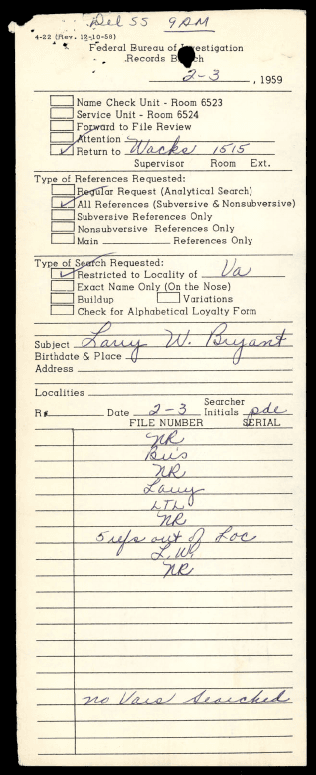 Del 55 9AM
4-22 (Rev. 12-10-58)
Federal Bureau of Investigation
Records Branch
2-3, 1959
Name Check Unit - Room 6523
Service Unit - Room 6524
Forward to File Review
Attention
Return to Wacks 1515
Supervisor Room Ext.
Type of References Requested:
Regular Request (Analytical Search)
All References (Subversive & Nonsubversive)
Subversive References Only
Nonsubversive References Only
Main References Only
Type of Search Requested:
Restricted to Locality of Va
Exact Name Only (On the Nose)
Buildup Variations
Check for Alphabetical Loyalty Form
Subject Larry W. Bryant
Birthdate & Place
Address
Localities
R# Date 2-3 Searcher Initials pde
FILE NUMBER SERIAL
NR
Bus
NR
Larry
LTL
NR
5 refs out of Loc
L.W.
NR
no Vars Searched